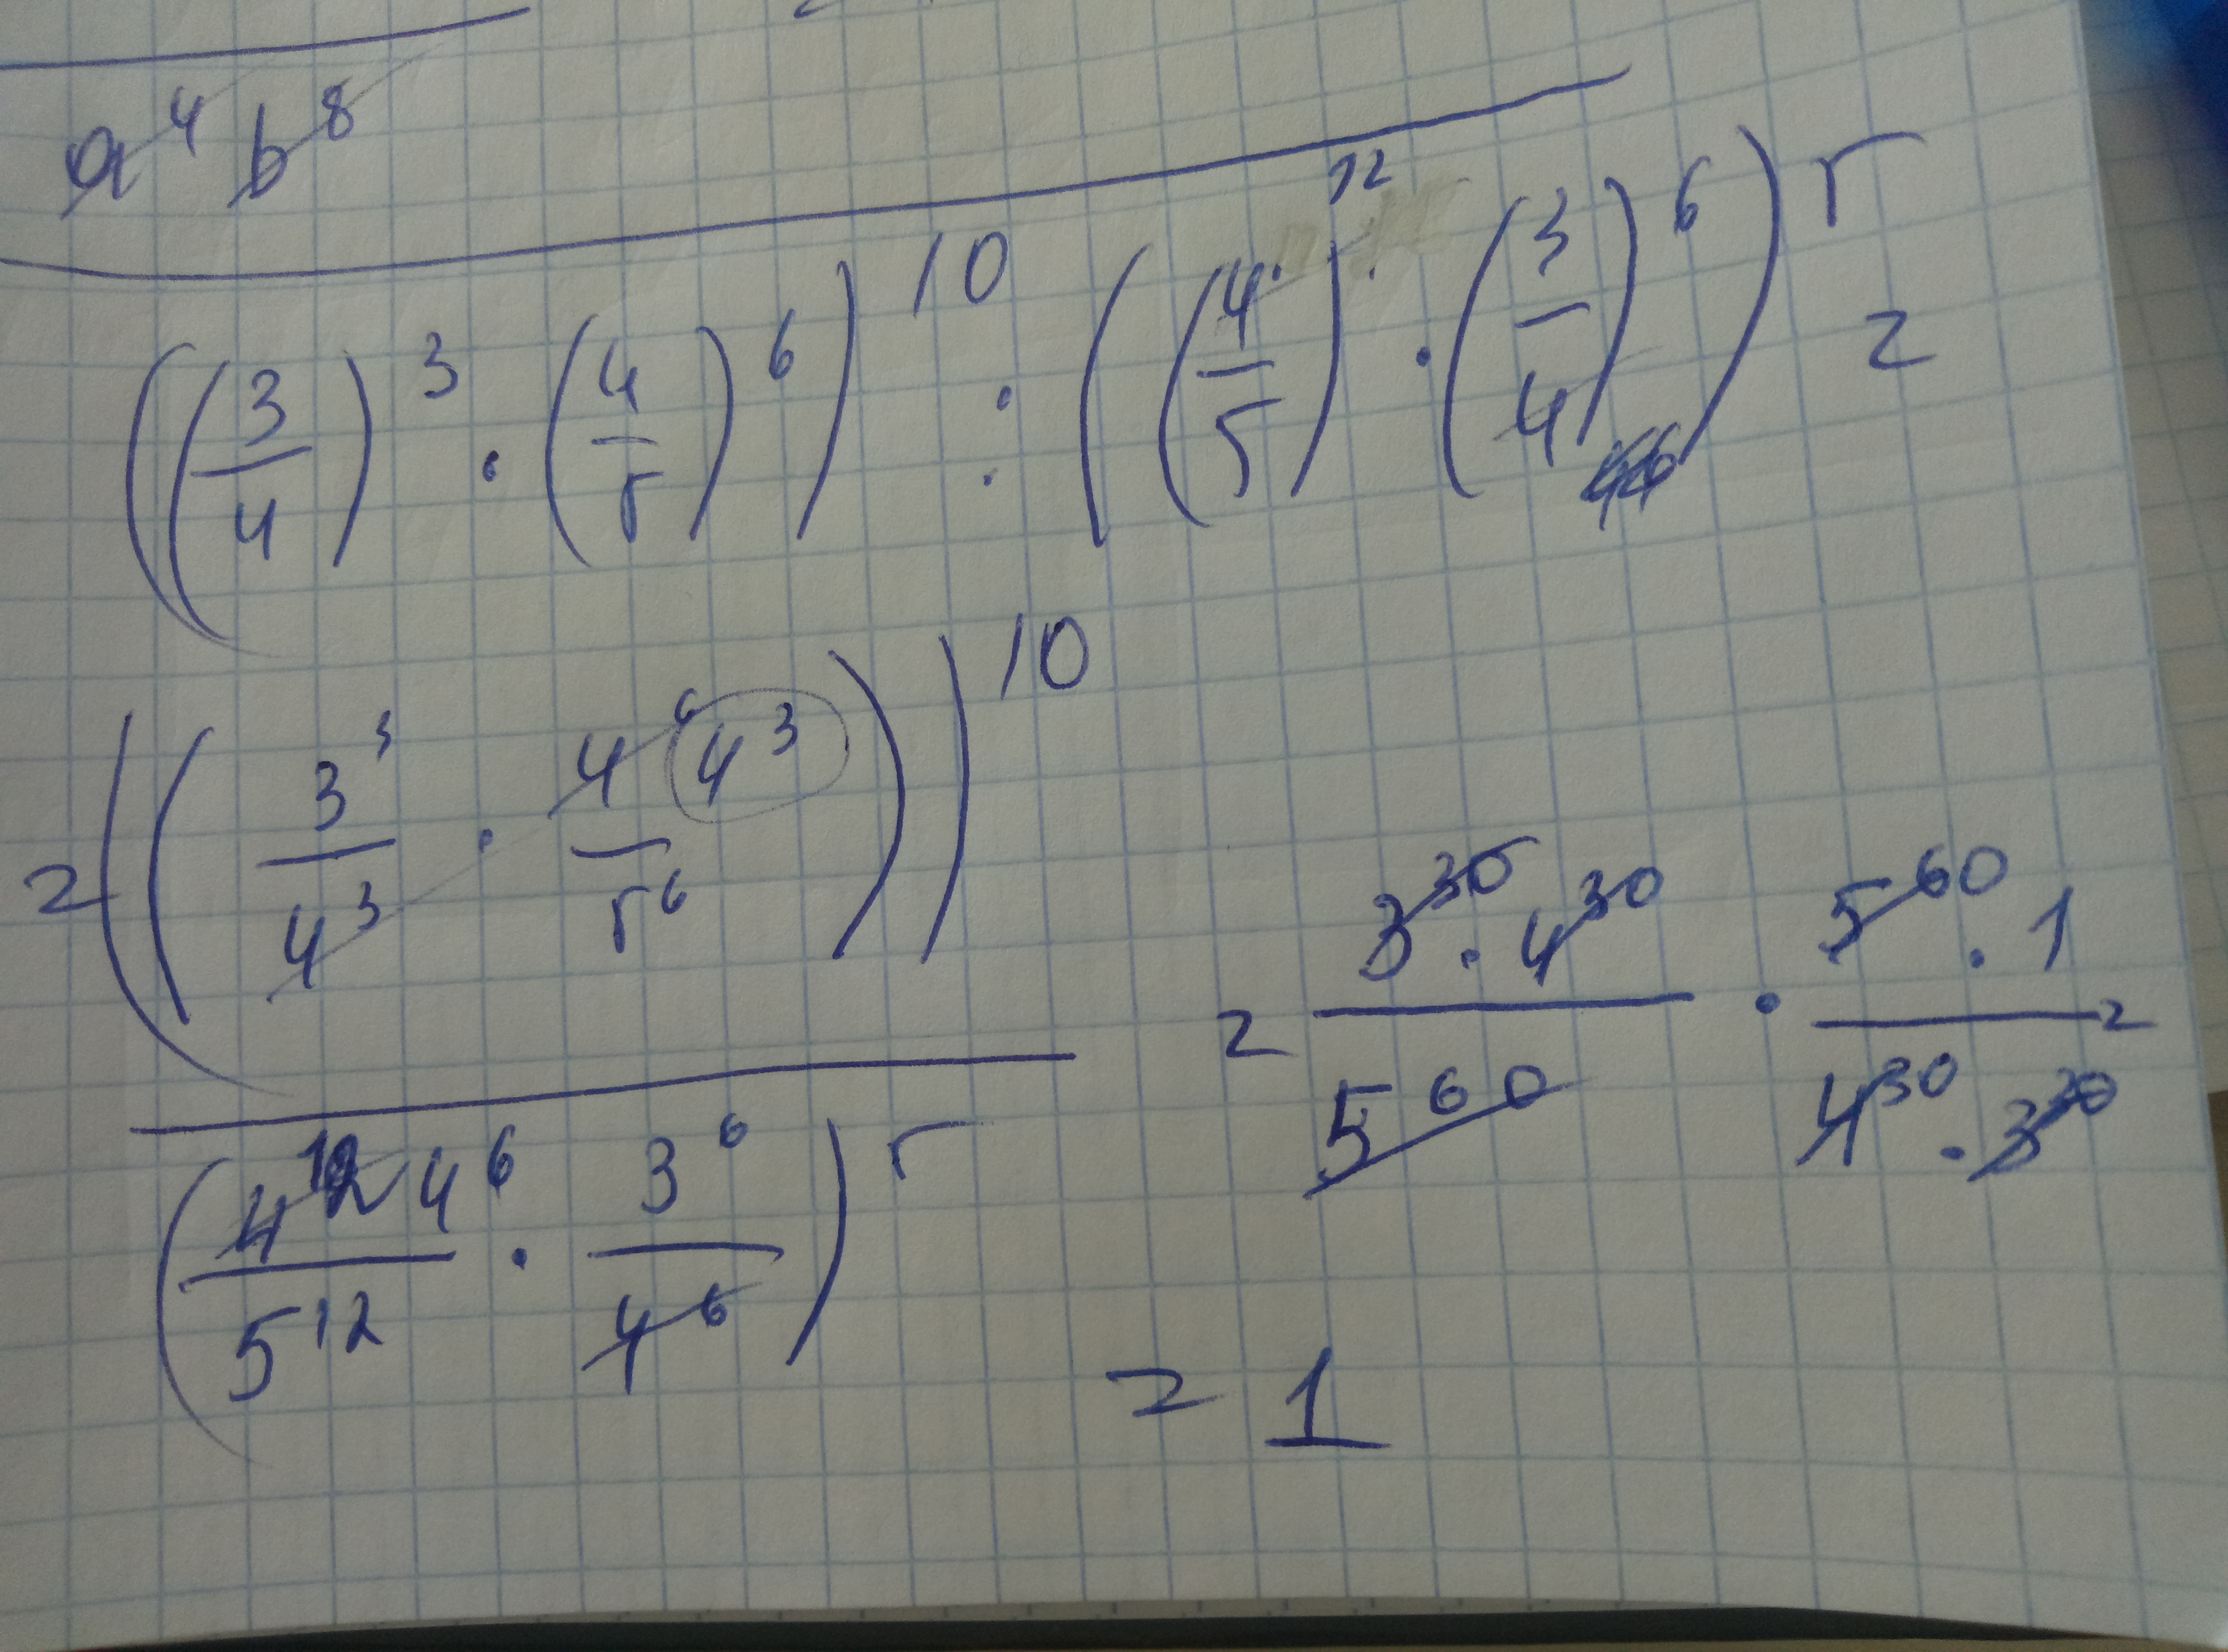 a⁴ b⁸
((3/4)³ · (4/5)⁶)¹⁰ : ((4/5)¹² · (3/4)⁶)⁵ =
= ((3³/4³ · 4⁶ 4³/5⁶))¹⁰ / (4¹² 4⁶/5¹² · 3⁶/4⁶)⁵ = 3³⁰ · 4³⁰/5⁶⁰ · 5⁶⁰ · 1/4³⁰ · 3³⁰ =
= 1